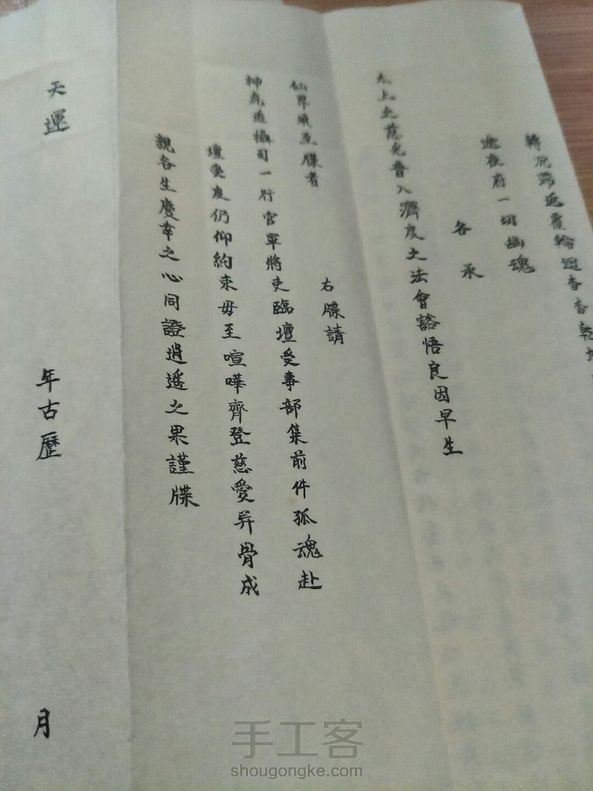 轉死滞返覆輪迴杳杳乾坤
途夜府一切幽魂
各承
太上之慈光晋入濟度之法會豁悟良因早生
仙界須至牒者
右牒請
神虎追攝司一行官軍將吏臨壇受事部集前件孤魂赴
壇受度仍仰約束毋至喧嘩齊登慈愛异骨成
親各生慶幸之心同證逍遥之果謹牒
天運
年古歷
月
手工客
shougongke.com